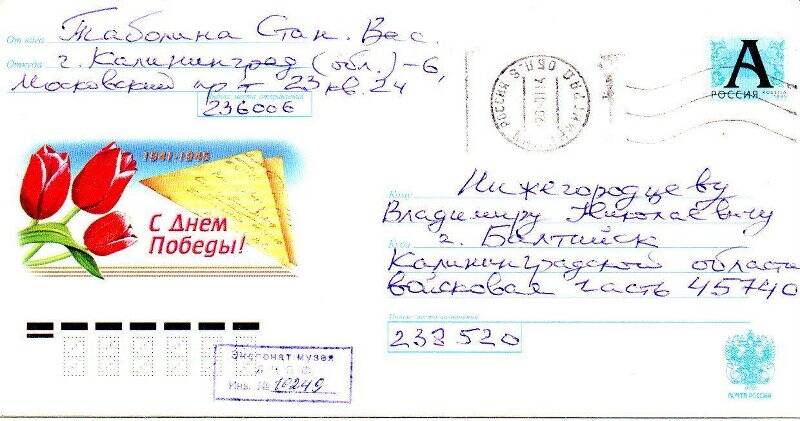 От кого Таболина Стан. Вас.
Откуда г. Калининград (обл.)-6,
Московский пр-т 23 кв. 24
Индекс места отправления
236006
РОССИЯ
А
РОССИЯ
ROSSIJA
1941-1945
С Днем
Победы!
Кому Нижегородцеву
Владимиру Николаевичу
Куда г. Балтийск
Калининградской области
войсковая часть 45740
Индекс места назначения
238520
Экспонат музея
Инв. № 19249
ПОЧТА РОССИИ